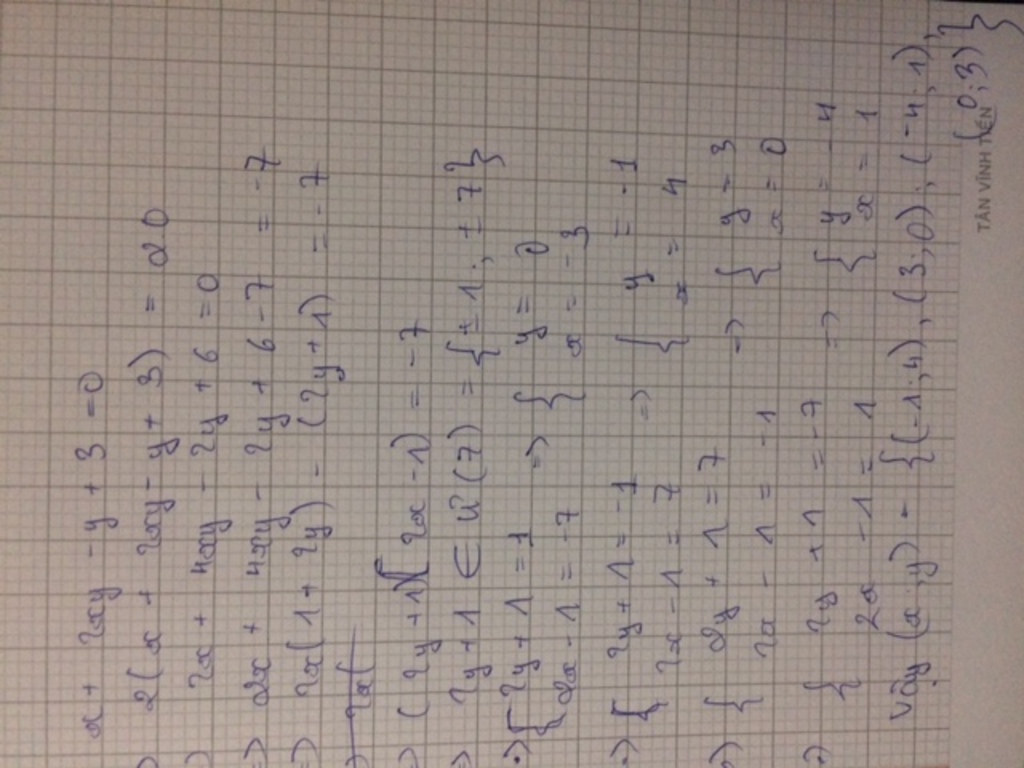 x + 2xy - y + 3 = 0
2(x + 2xy - y + 3) = 2 0
2x + 4xy - 2y + 6 = 0
=> 2x + 4xy - 2y + 6 - 7 = -7
=> 2x(1 + 2y) - (2y + 1) = -7
2x(
=> (2y + 1)(2x - 1) = -7
=> 2y + 1 ∈ Ư(7) = {±1; ±7}
=> { 2y + 1 = 1 => { y = 0
2x - 1 = -7 x = -3
=> { 2y + 1 = -1 => { y = -1
2x - 1 = 7 x = 4
=> { 2y + 1 = 7 => { y = 3
2x - 1 = -1 x = 0
=> { 2y + 1 = -7 => { y = -4
2x - 1 = 1 x = 1
Vậy (x; y) = {(-1; 4), (3; 0); (-4; 1),
(0; 3)}
TÂN VĨNH TIẾN